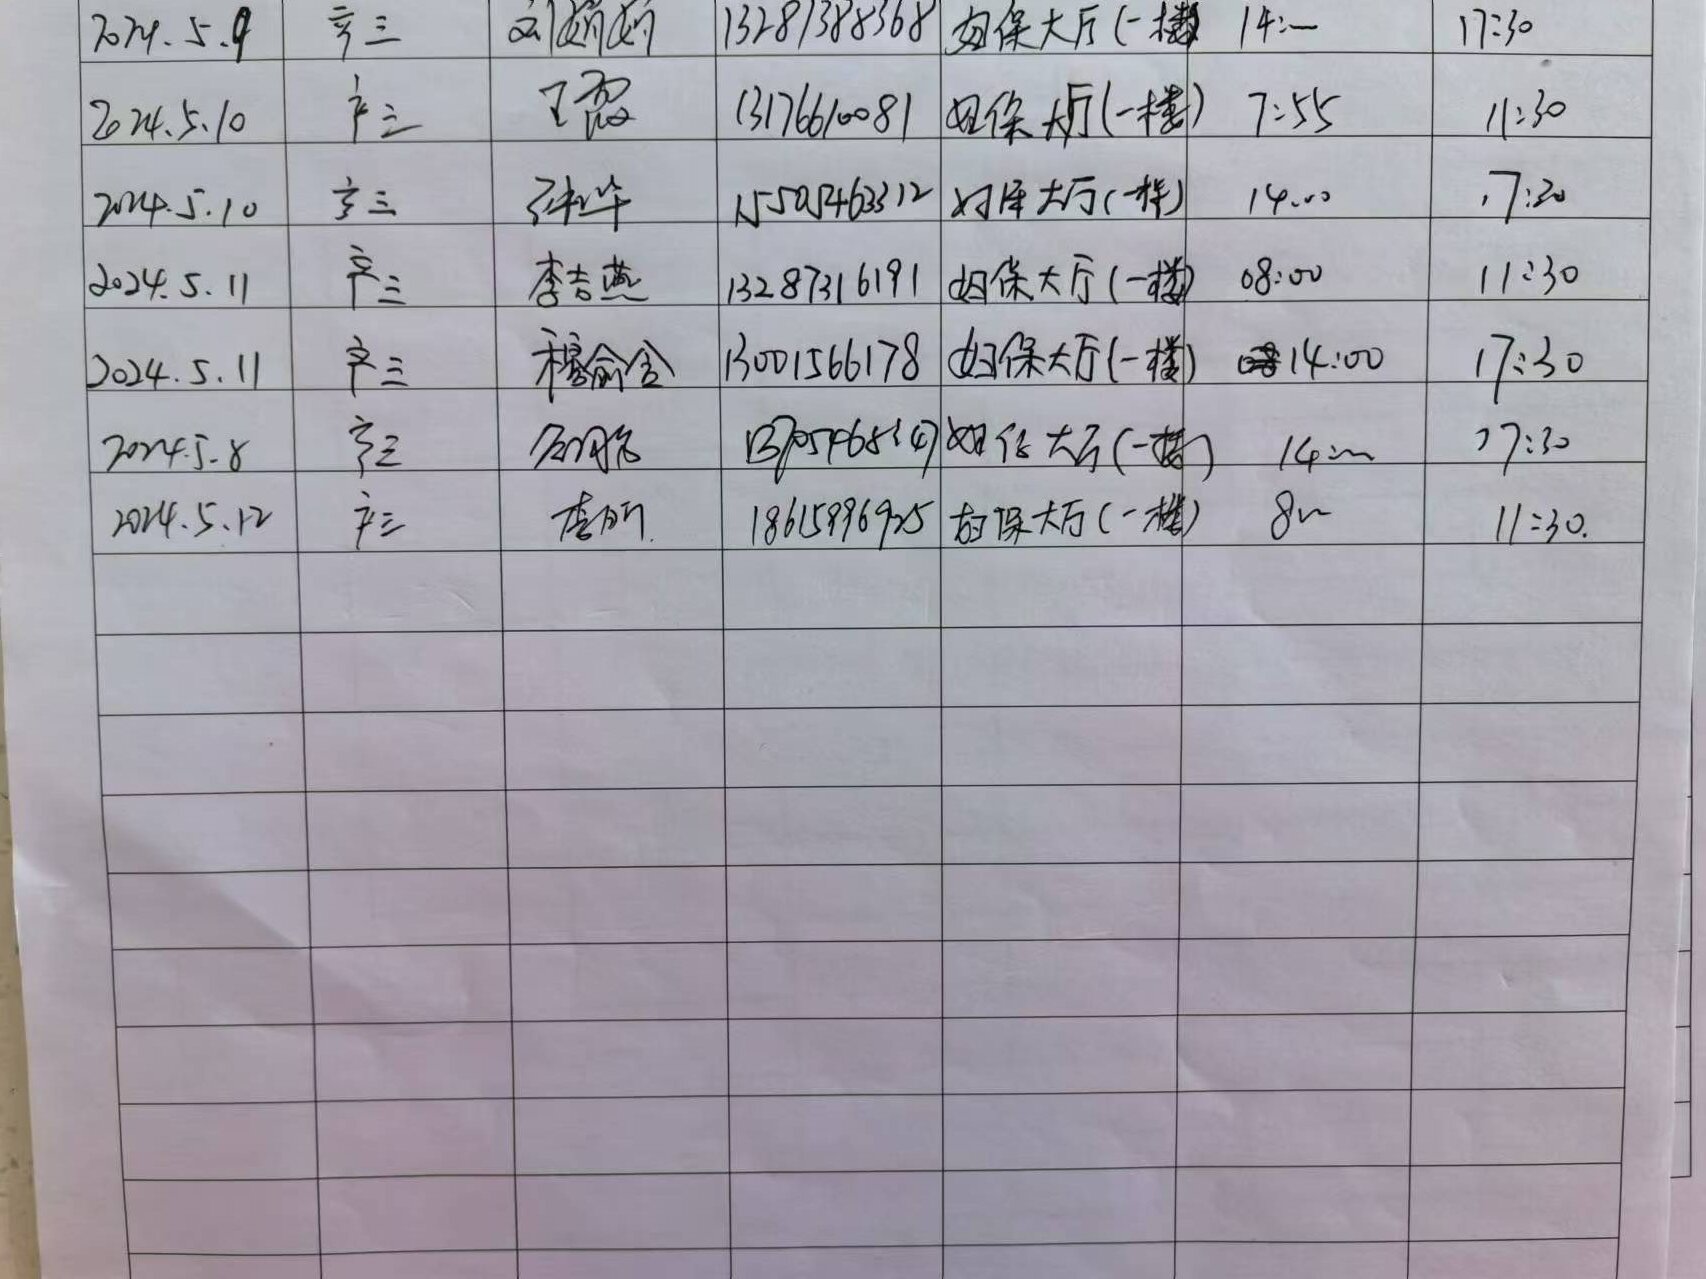 2024.5.9 产三 刘娇娇 13287388368 妇保大厅(一楼) 14:00 17:30
2024.5.10 产三 13176610081 妇保大厅(一楼) 7:55 11:30
2024.5.10 产三 15505463312 妇保大厅(一楼) 14:00 17:30
2024.5.11 产三 李吉燕 13287316191 妇保大厅(一楼) 08:00 11:30
2024.5.11 产三 13001566178 妇保大厅(一楼) 14:00 17:30
2024.5.8 产三 妇保大厅(一楼) 14:00 17:30
2024.5.12 产三 18615996925 妇保大厅(一楼) 8:00 11:30.